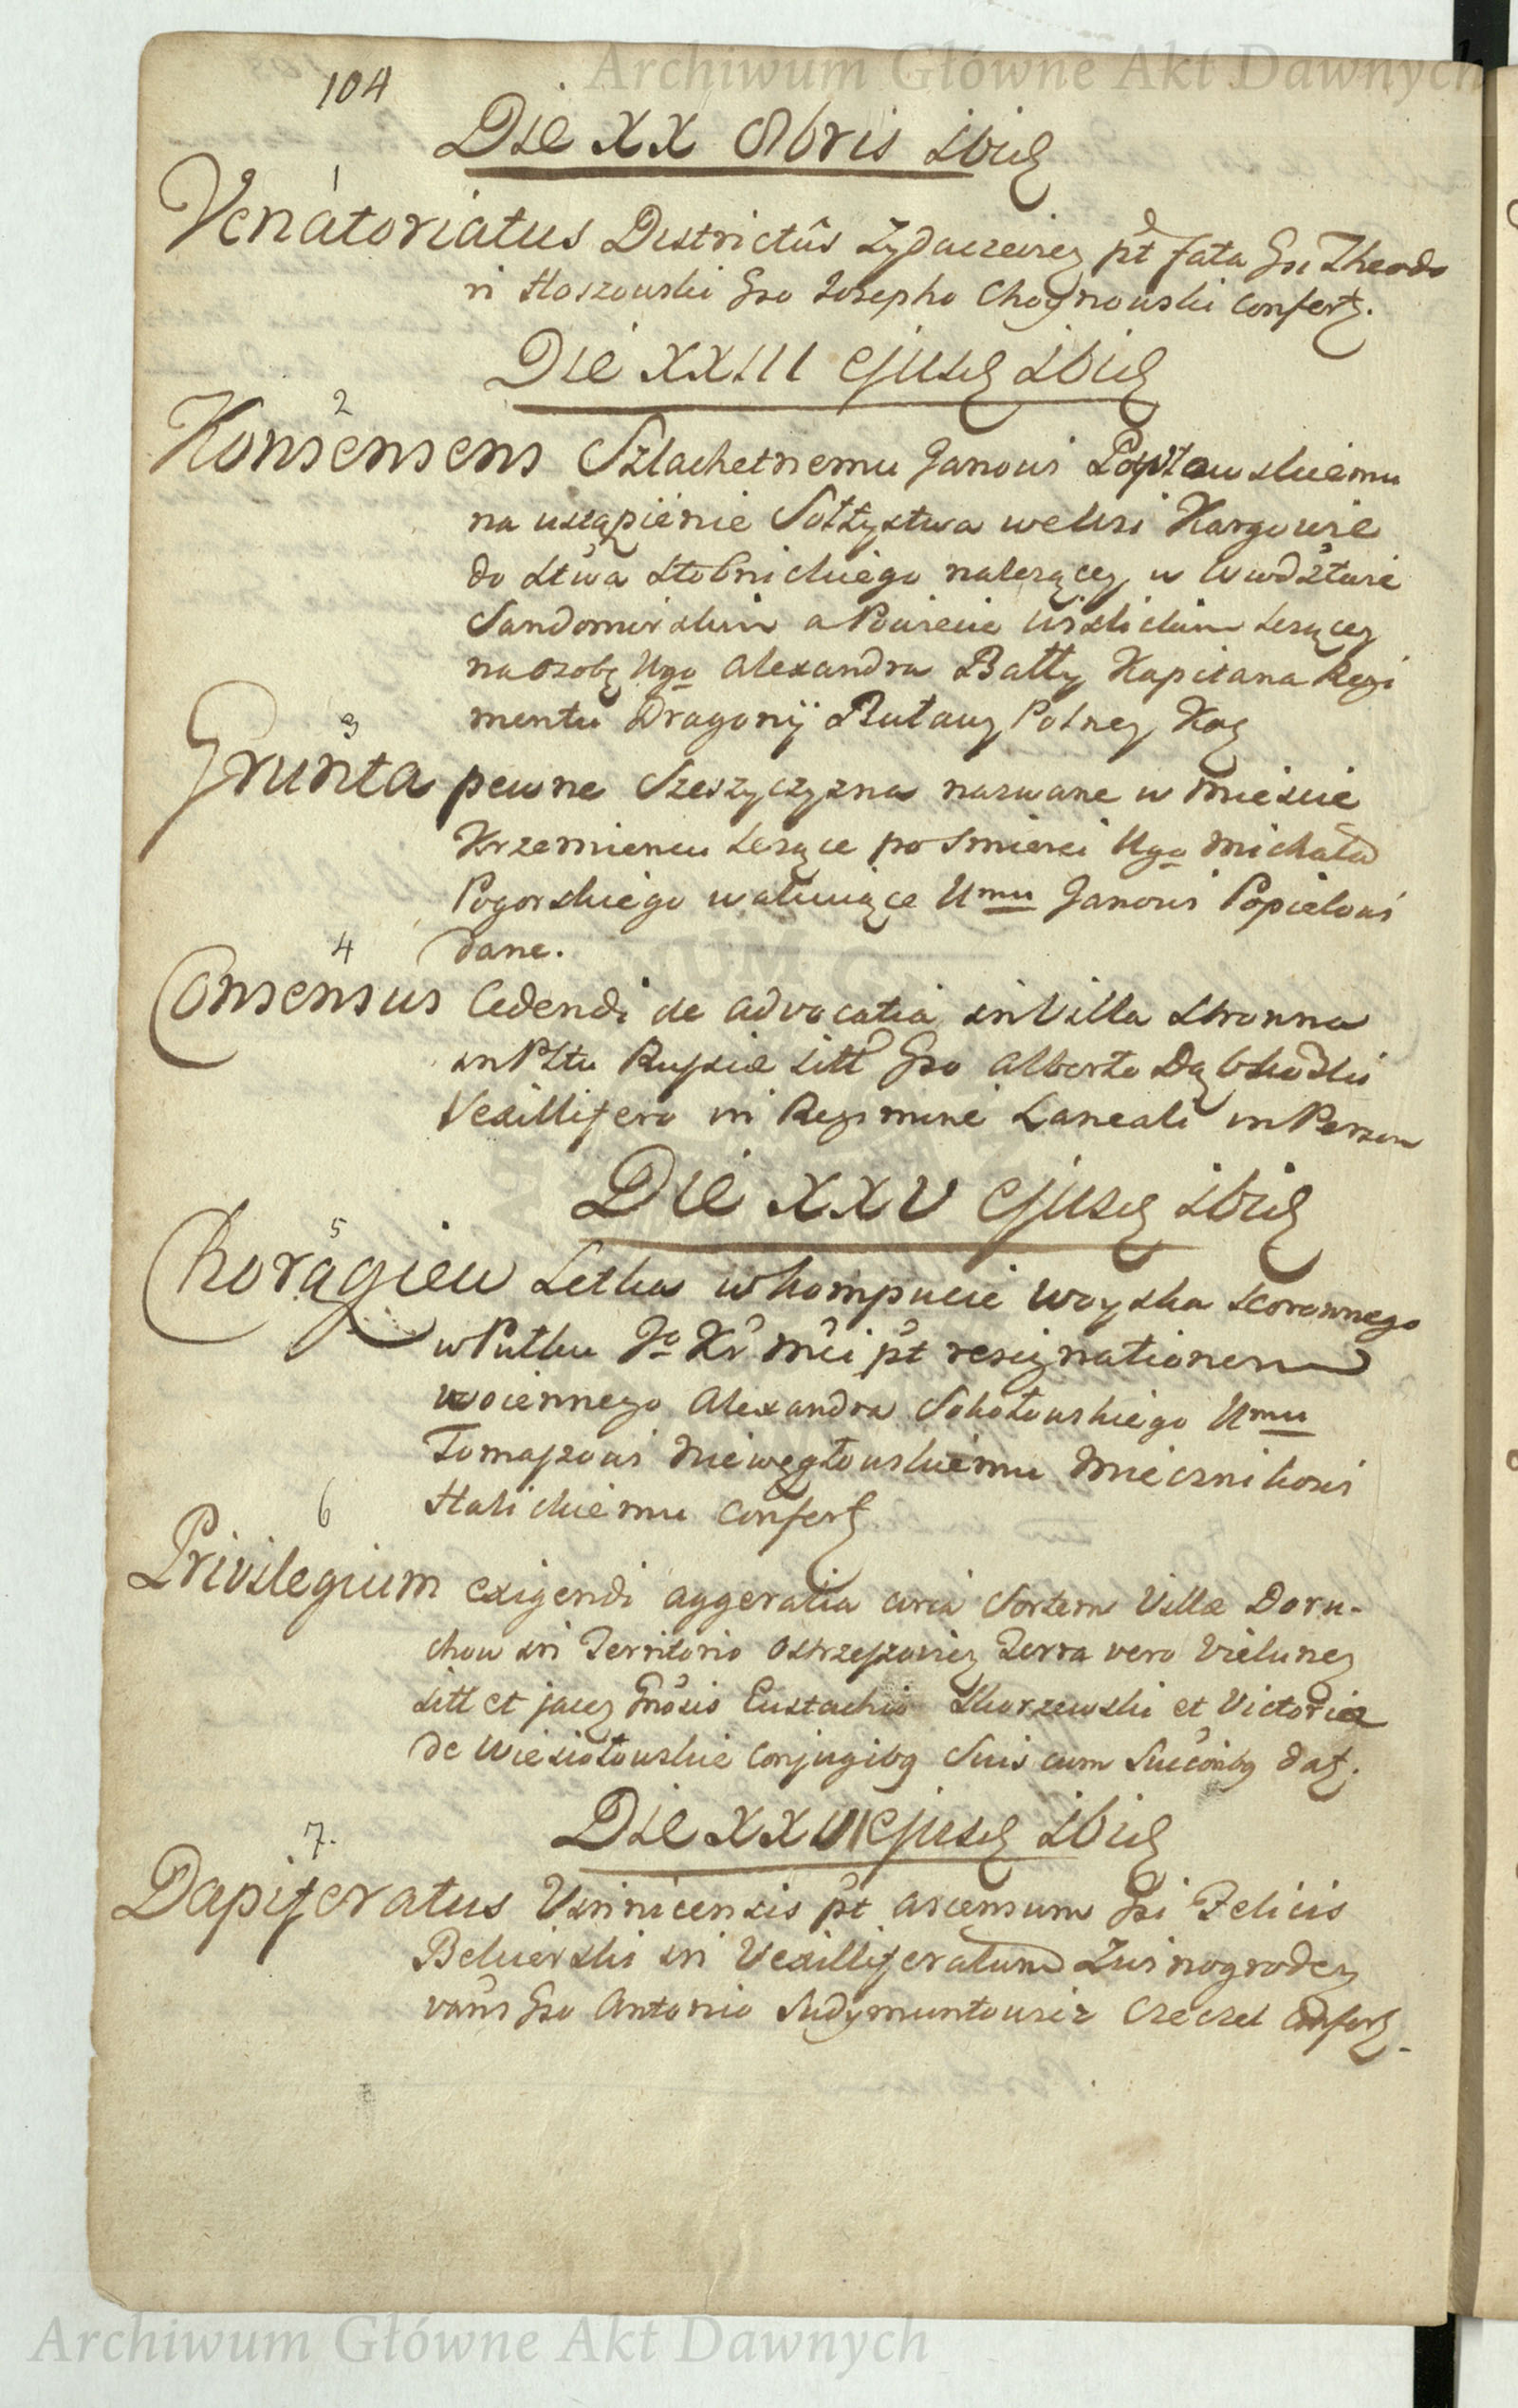 Archiwum Główne Akt Dawnych
104
Die XX 8bris ibid
1
Venatoriatus Districtûs Zydaczeviẽ pt fata Gsi Theodo
ri Hoszowski Gso Josepho Choynowski confert.
Die XXIII ejusd ibid
2
Konsensens Szlachetnemu Janowi
na ustąpienie Sołtystwa we Wsi Kargowie
do Stwa Stobnickiego należącey w Wwdztwie
Sandomirskim a Powiecie Wislickim leżącey
na osobę Ugo Alexandra Batty Kapitana Regi
mentu Dragonij Buławy Polney Kor
3
Grunta pewne Szeszyczyzna nazwane w Mieście
Krzemiencu leżące po Smierci Ugo Michała
Pogorskiego wakuiące Umu Janowi Popielowi
dane.
4
Consensus Cedendi de advocatia in Villa Stronna
in Pltu Russiæ sitt Gso Alberto
Vexillifero in Regimine Laneali in Person
Die XXV ejusd ibid
5
Chorągiew Letka w kompucie Woyska Koronnego
w Pułku Jo Kr Mci pt resignationem
woiennego Alexandra Sokołowskiego Umu
Tomaszowi Niewęgłowskiemu Miecznikowi
Halickiemu confert
6
Privilegium exigendi aggeratia circa Sortem Villæ Doru-
chow in Territorio Ostrzeszoviẽ Terra vero Vielunẽ
sitt et jacẽ Gnosis Eustachio Skorzewski et Victoriæ
de Wiesiołowskie Conjugibq Suis cum Succoribq dat.
Die XXVI ejusd ibid
7.
Dapiferatus Vinnicensis pt ascensum Gsi Felicis
Bekierski in Vexilliferatum Zwinogrodẽ
vans Gso Antonio Nudymuntowicz Czeczel confert.
Archiwum Główne Akt Dawnych